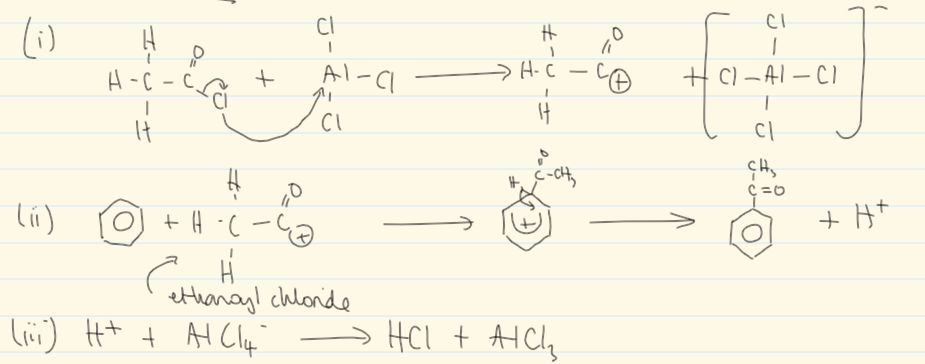 (i) H H-C-C O Cl H + Cl Al-Cl Cl → H H-C-C O ⊕ H + [Cl Cl-Al-Cl Cl]⁻
(ii) + H H-C-C O ⊕ H → H O C-CH₃ + → CH₃ C=O + H⁺
ethanoyl chloride
(iii) H⁺ + AlCl₄⁻ → HCl + AlCl₃